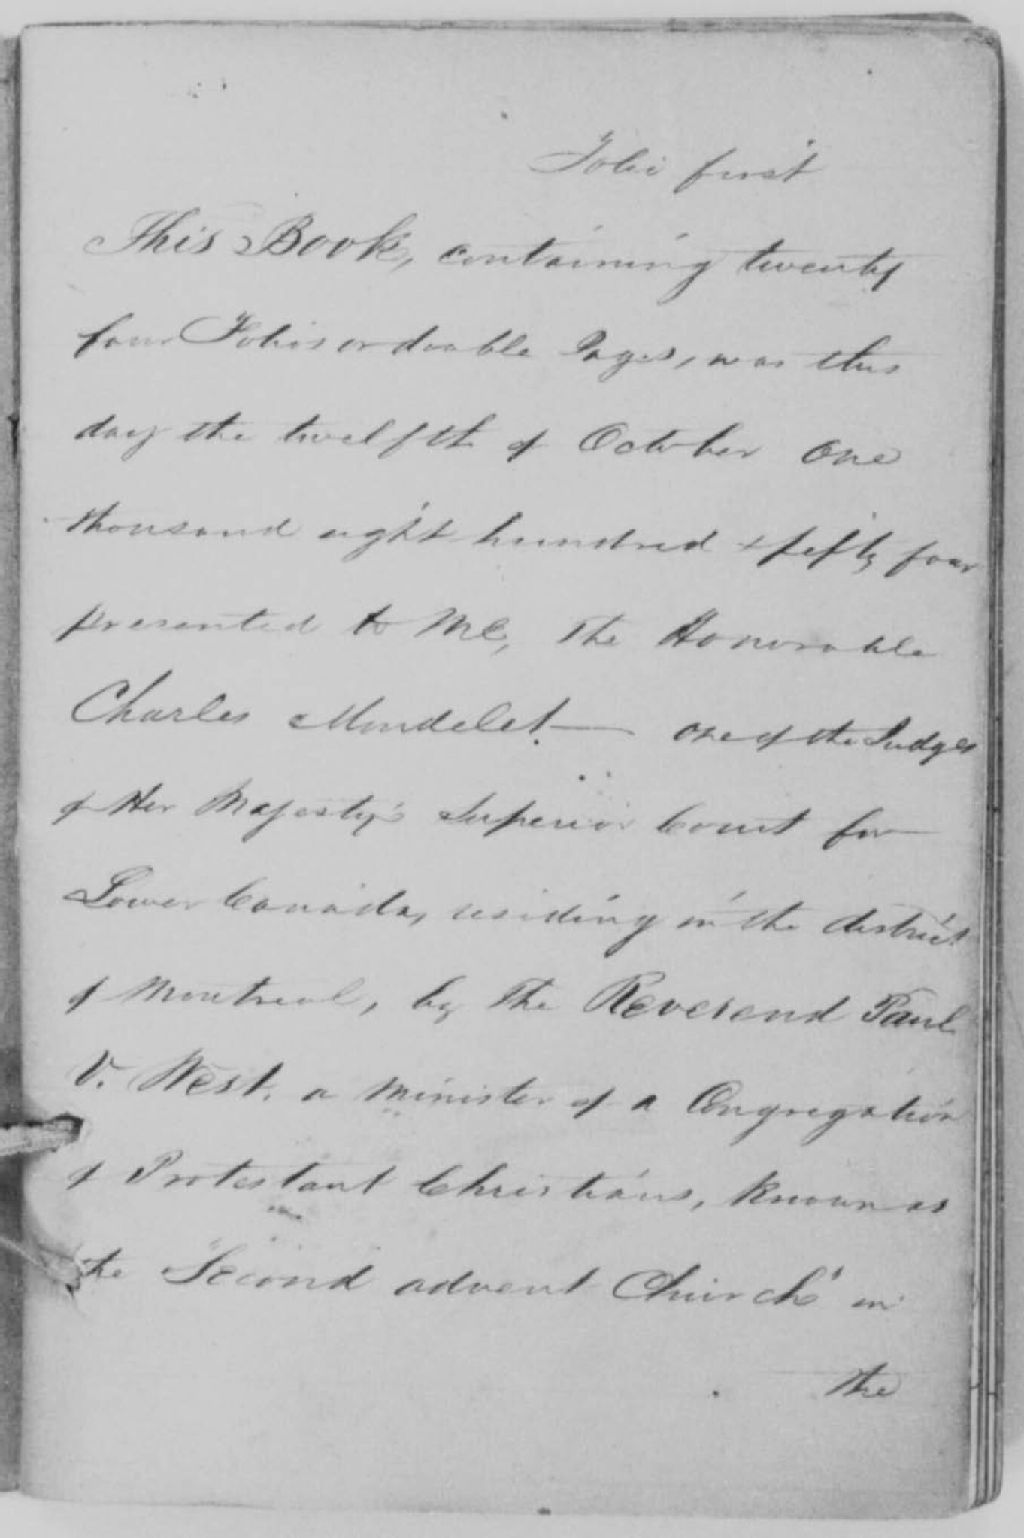 Folio first
This Book, containing twenty
four Folios or double Pages, was this
day the twelfth of October One
thousand eight hundred & fifty four
presented to Me, The Honorable
Charles Mondelet. one of the Judges
of Her Majesty's Superior Court for
Lower Canada, residing in the district
of Montreal, by The Reverend Paul
V. West, a Minister of a Congregation
of Protestant Christians, Known as
the "Second advent Church" in
the